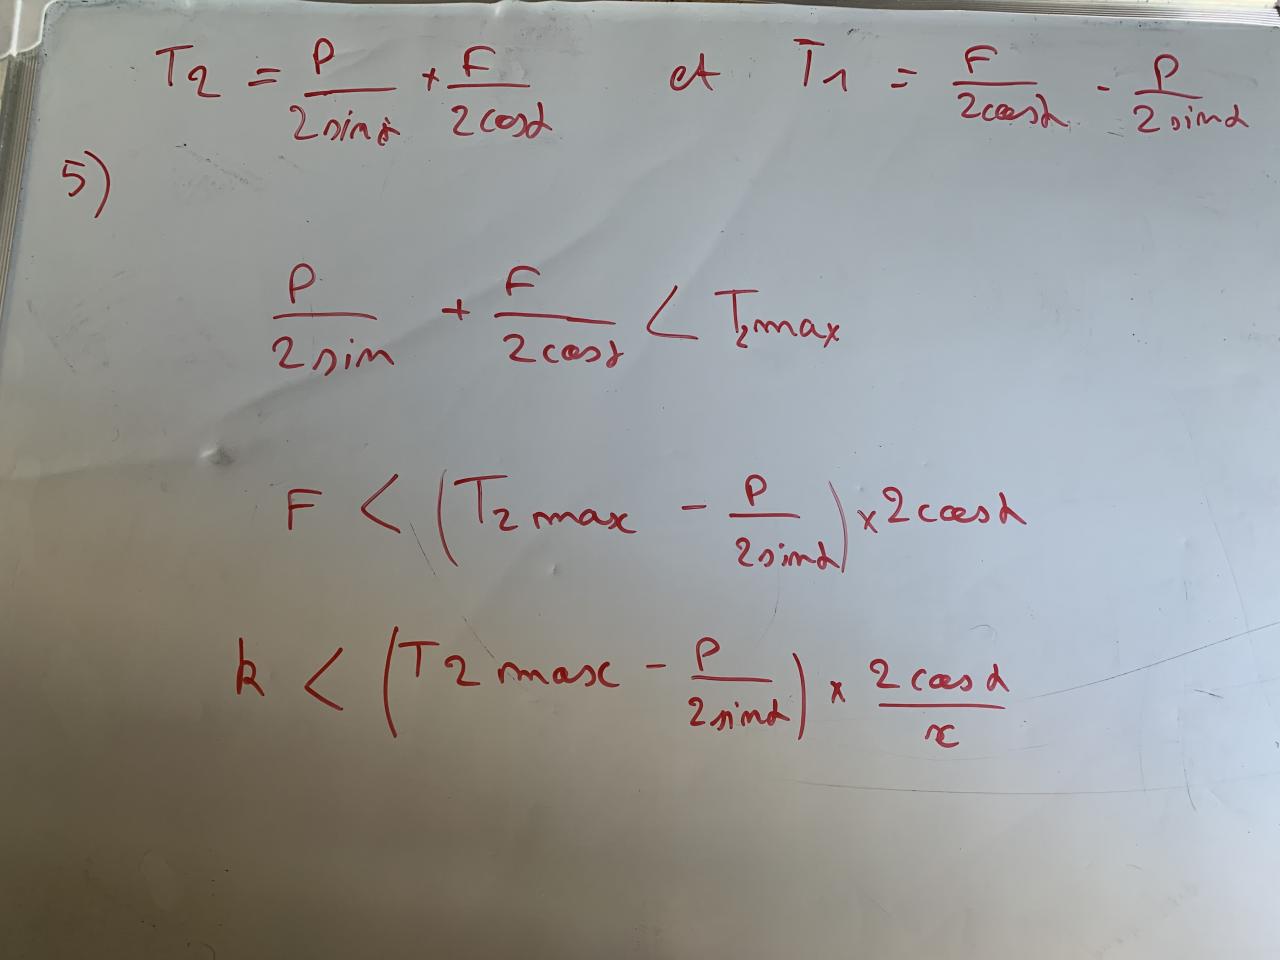 T2 = P/2sinα + F/2cosα et T1 = F/2cosα - P/2sinα
5)
P/2sin + F/2cosα < T2max
F < (T2max - P/2sinα) × 2cosα
k < (T2max - P/2sinα) × 2cosα/x